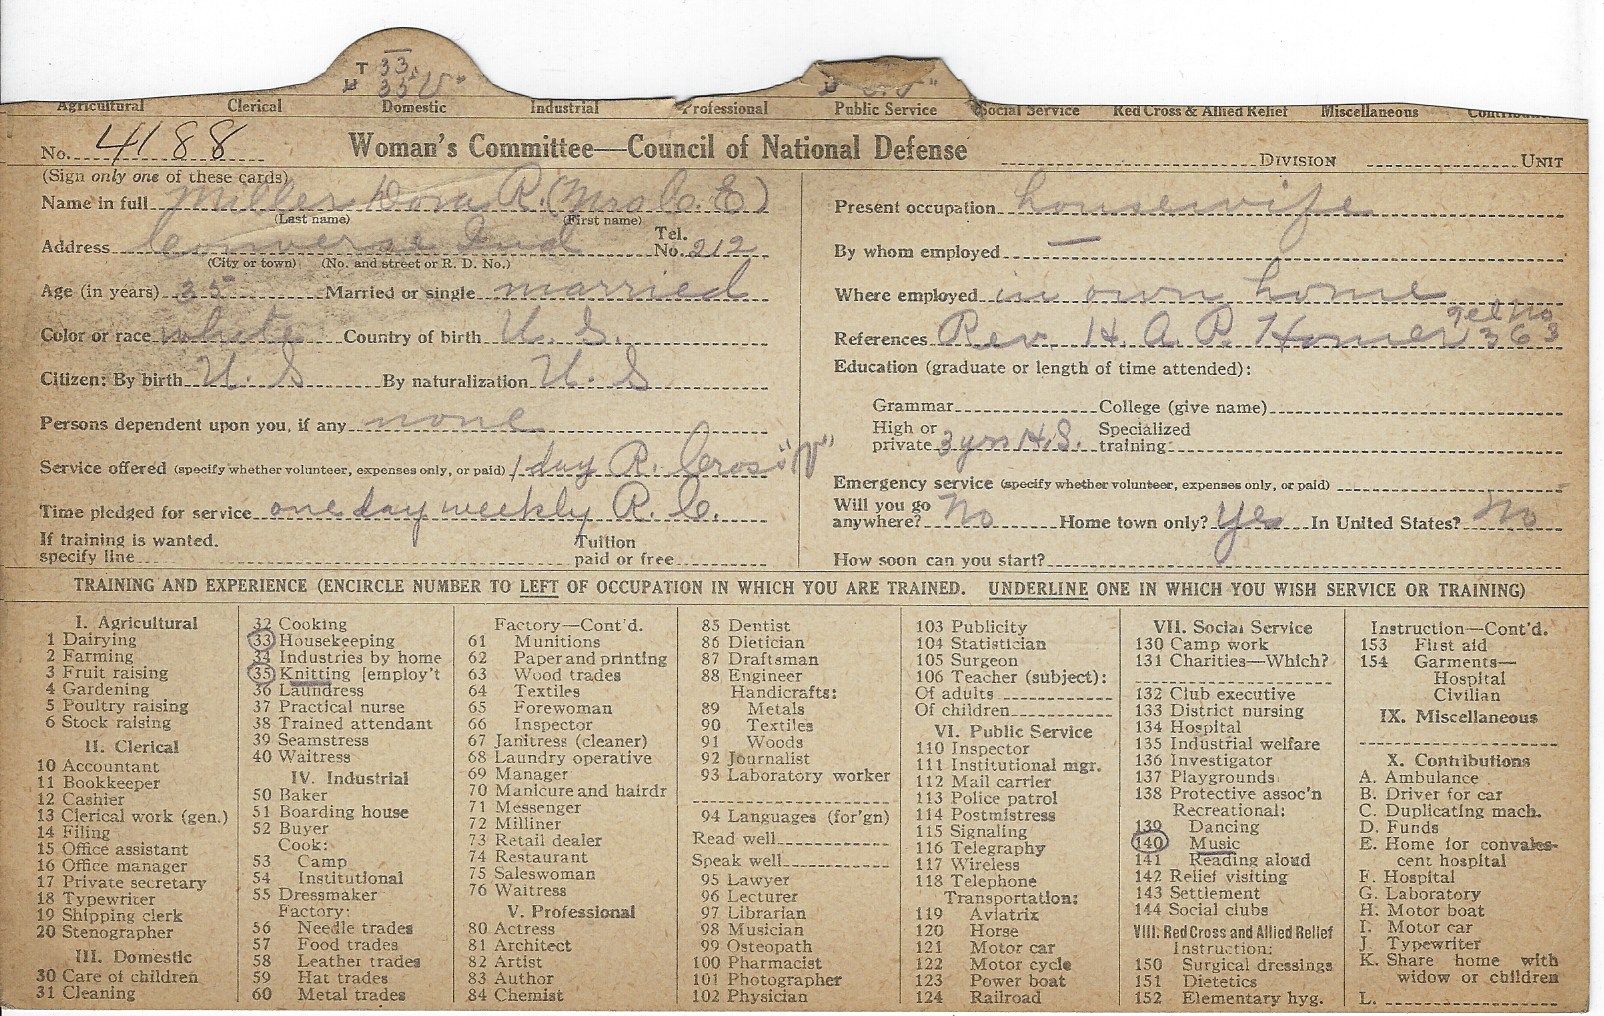 T 33.
W 35 "V"
Agricultural Clerical Domestic Industrial Professional Public Service Social Service Red Cross & Allied Relief Miscellaneous
No. 4188 Woman's Committee—Council of National Defense DIVISION UNIT
(Sign only one of these cards)
Name in full Miller Dora R. (Mrs C. E)
(Last name) (First name)
Address Converse Ind Tel. No. 212
(City or town) (No. and street or R. D. No.)
Age (in years) 35 Married or single married
Color or race white Country of birth U. S.
Citizen: By birth U. S By naturalization U. S
Persons dependent upon you, if any none
Service offered (specify whether volunteer, expenses only, or paid) 1 day R. Cross "V"
Time pledged for service one day weekly R. C.
If training is wanted. Tuition
specify line paid or free
Present occupation housewife
By whom employed —
Where employed in own home
References Rev. H. A. P. Homer Tel No 363
Education (graduate or length of time attended):
Grammar College (give name)
High or Specialized
private 3 yrs H.S. training
Emergency service (specify whether volunteer, expenses only, or paid)
Will you go
anywhere? No Home town only? Yes In United States? No
How soon can you start?
TRAINING AND EXPERIENCE (ENCIRCLE NUMBER TO LEFT OF OCCUPATION IN WHICH YOU ARE TRAINED. UNDERLINE ONE IN WHICH YOU WISH SERVICE OR TRAINING)
I. Agricultural
1 Dairying
2 Farming
3 Fruit raising
4 Gardening
5 Poultry raising
6 Stock raising
II. Clerical
10 Accountant
11 Bookkeeper
12 Cashier
13 Clerical work (gen.)
14 Filing
15 Office assistant
16 Office manager
17 Private secretary
18 Typewriter
19 Shipping clerk
20 Stenographer
III. Domestic
30 Care of children
31 Cleaning
32 Cooking
33 Housekeeping
34 Industries by home
35 Knitting [employ't
36 Laundress
37 Practical nurse
38 Trained attendant
39 Seamstress
40 Waitress
IV. Industrial
50 Baker
51 Boarding house
52 Buyer
Cook:
53 Camp
54 Institutional
55 Dressmaker
Factory:
56 Needle trades
57 Food trades
58 Leather trades
59 Hat trades
60 Metal trades
Factory—Cont'd.
61 Munitions
62 Paper and printing
63 Wood trades
64 Textiles
65 Forewoman
66 Inspector
67 Janitress (cleaner)
68 Laundry operative
69 Manager
70 Manicure and hairdr
71 Messenger
72 Milliner
73 Retail dealer
74 Restaurant
75 Saleswoman
76 Waitress
V. Professional
80 Actress
81 Architect
82 Artist
83 Author
84 Chemist
85 Dentist
86 Dietician
87 Draftsman
88 Engineer
Handicrafts:
89 Metals
90 Textiles
91 Woods
92 Journalist
93 Laboratory worker
94 Languages (for'gn)
Read well
Speak well
95 Lawyer
96 Lecturer
97 Librarian
98 Musician
99 Osteopath
100 Pharmacist
101 Photographer
102 Physician
103 Publicity
104 Statistician
105 Surgeon
106 Teacher (subject):
Of adults
Of children
VI. Public Service
110 Inspector
111 Institutional mgr.
112 Mail carrier
113 Police patrol
114 Postmistress
115 Signaling
116 Telegraphy
117 Wireless
118 Telephone
Transportation:
119 Aviatrix
120 Horse
121 Motor car
122 Motor cycle
123 Power boat
124 Railroad
VII. Social Service
130 Camp work
131 Charities—Which?
132 Club executive
133 District nursing
134 Hospital
135 Industrial welfare
136 Investigator
137 Playgrounds
138 Protective assoc'n
Recreational:
139 Dancing
140 Music
141 Reading aloud
142 Relief visiting
143 Settlement
144 Social clubs
VIII. Red Cross and Allied Relief
Instruction:
150 Surgical dressings
151 Dietetics
152 Elementary hyg.
Instruction—Cont'd.
153 First aid
154 Garments—
Hospital
Civilian
IX. Miscellaneous
X. Contributions
A. Ambulance
B. Driver for car
C. Duplicating mach.
D. Funds
E. Home for convales-
cent hospital
F. Hospital
G. Laboratory
H. Motor boat
I. Motor car
J. Typewriter
K. Share home with
widow or children
L.